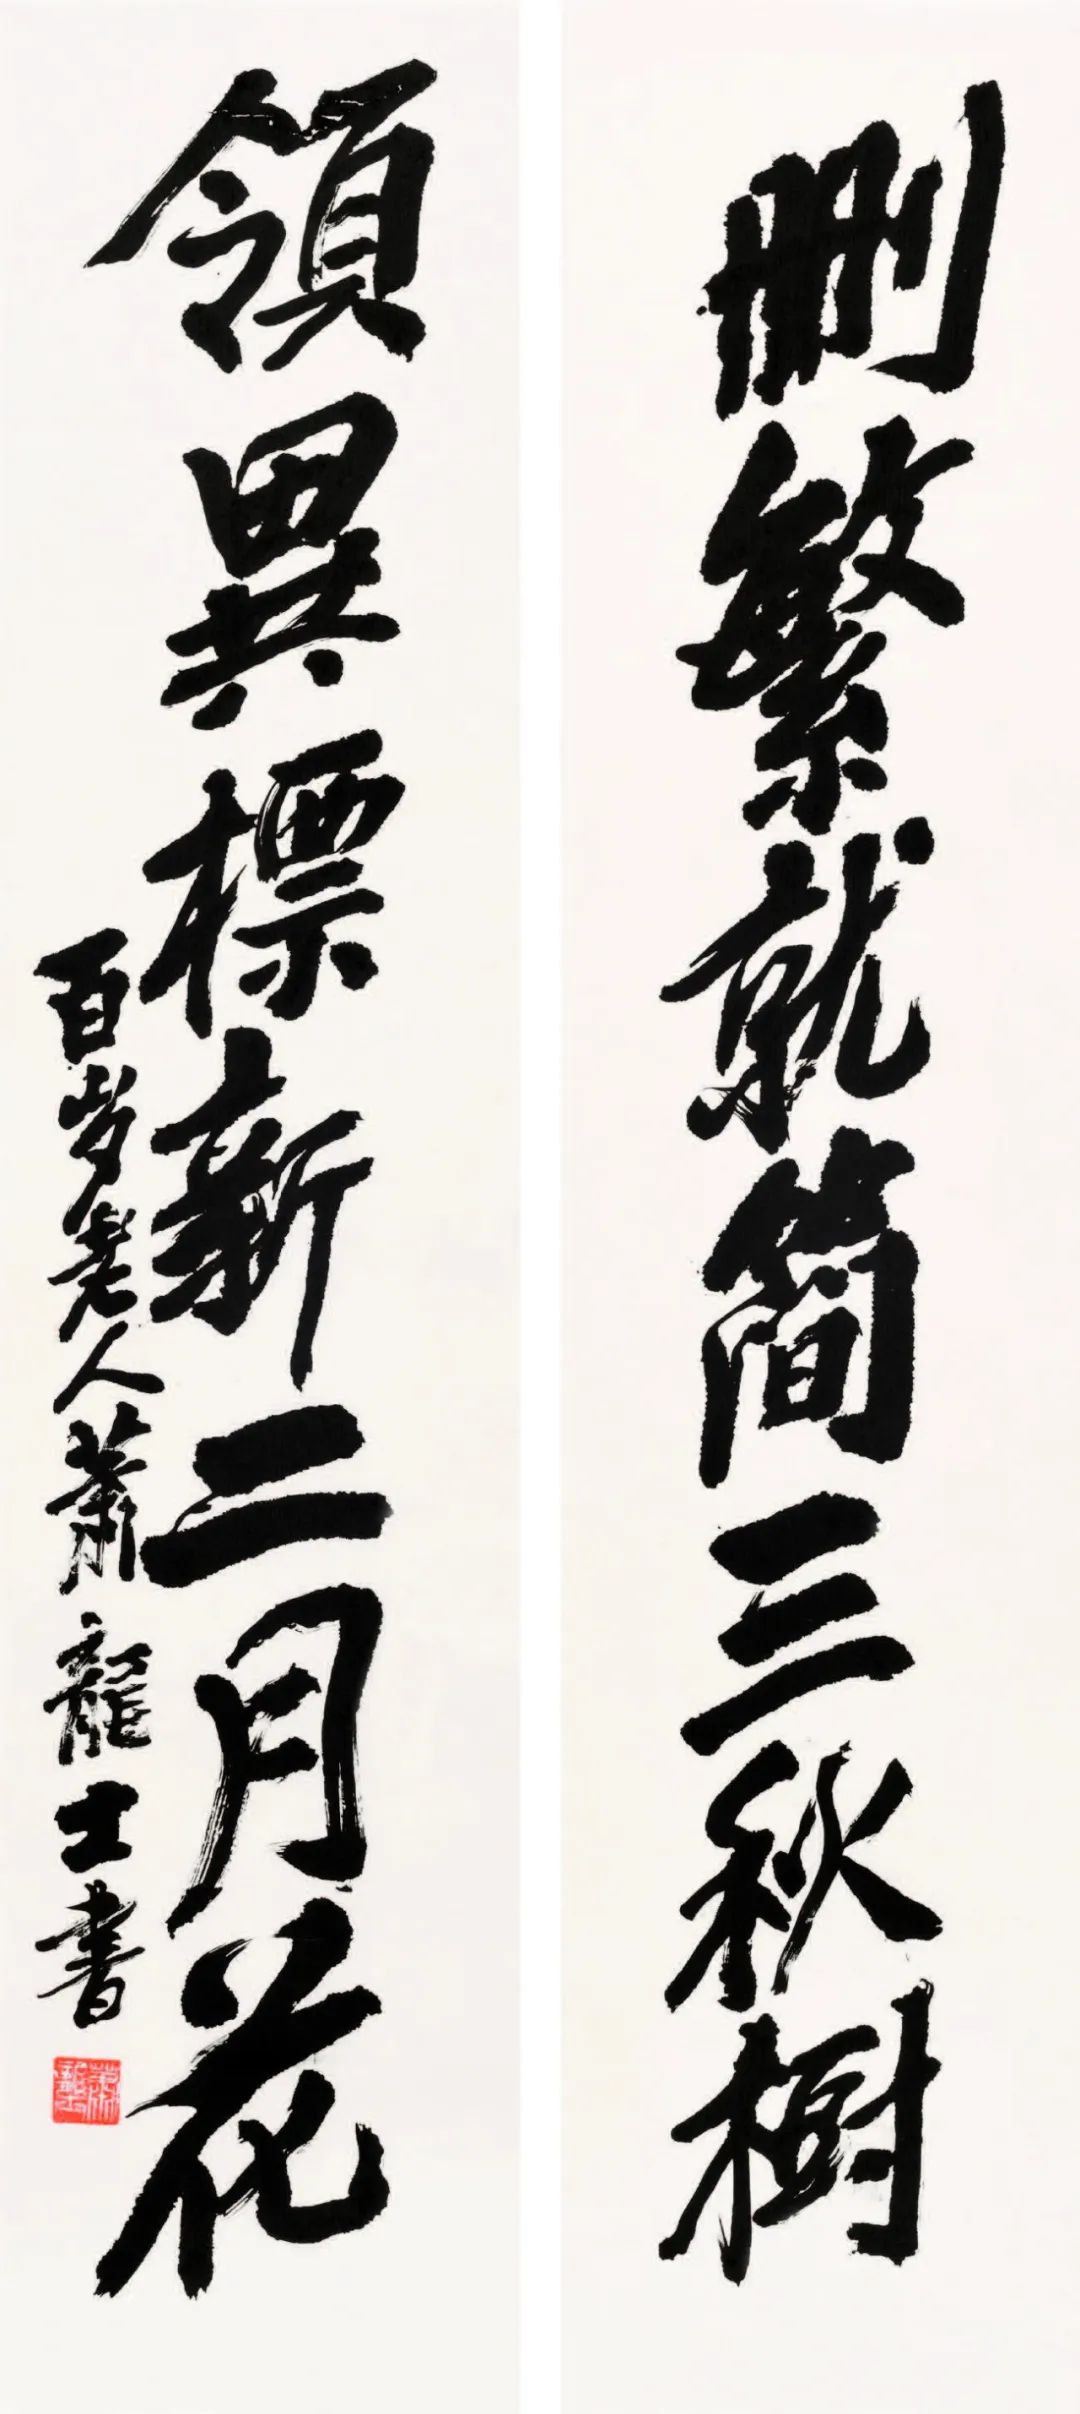 刪繁就簡三秋樹
領異標新二月花
百岁老人蕭龍士書
蕭龍士